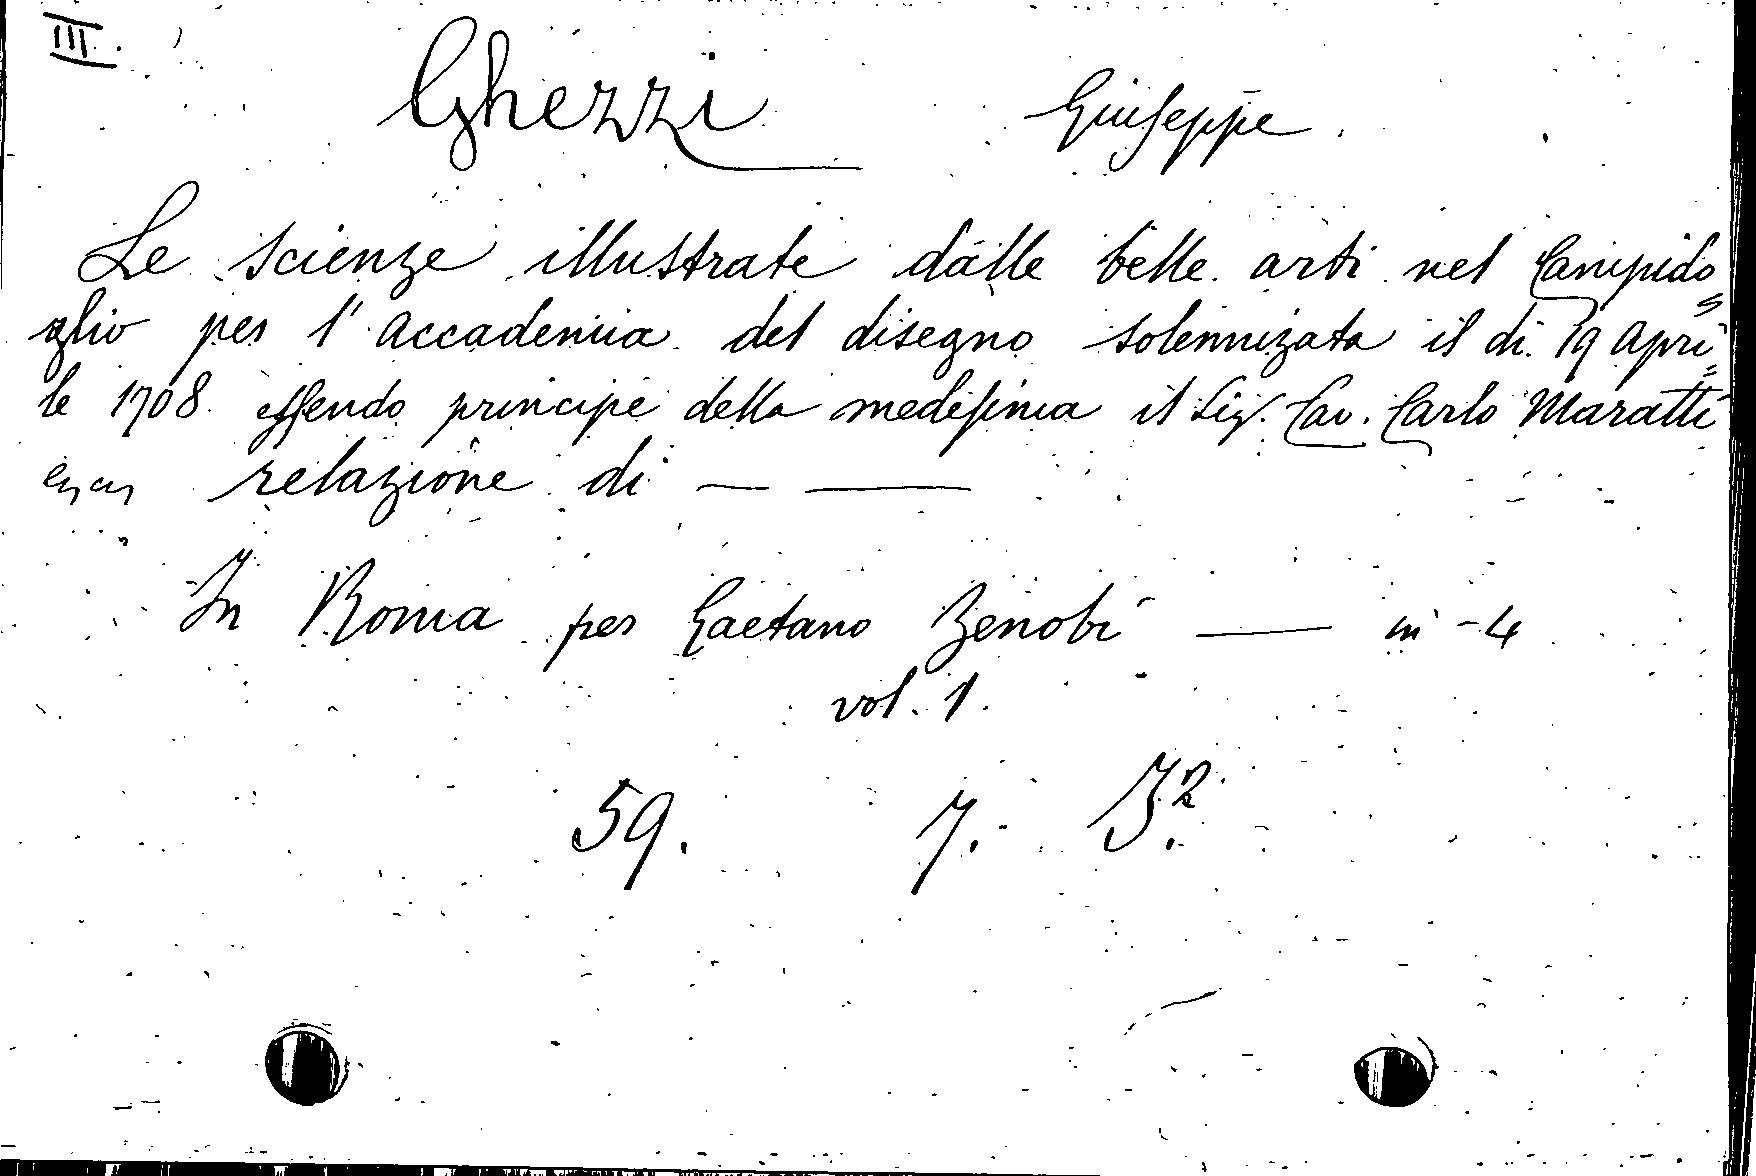 III.
Ghezzi Giuseppe
Le scienze illustrate dalle belle arti nel Campido=
glio per l'accademia del disegno solennizata il di. 19 apri=
le 1708. essendo principe della medesima il Sig. Cav. Carlo Maratti
relazione di — —
In Roma per Gaetano Zenobi — in -4
vol. 1.
59. 7. J.2